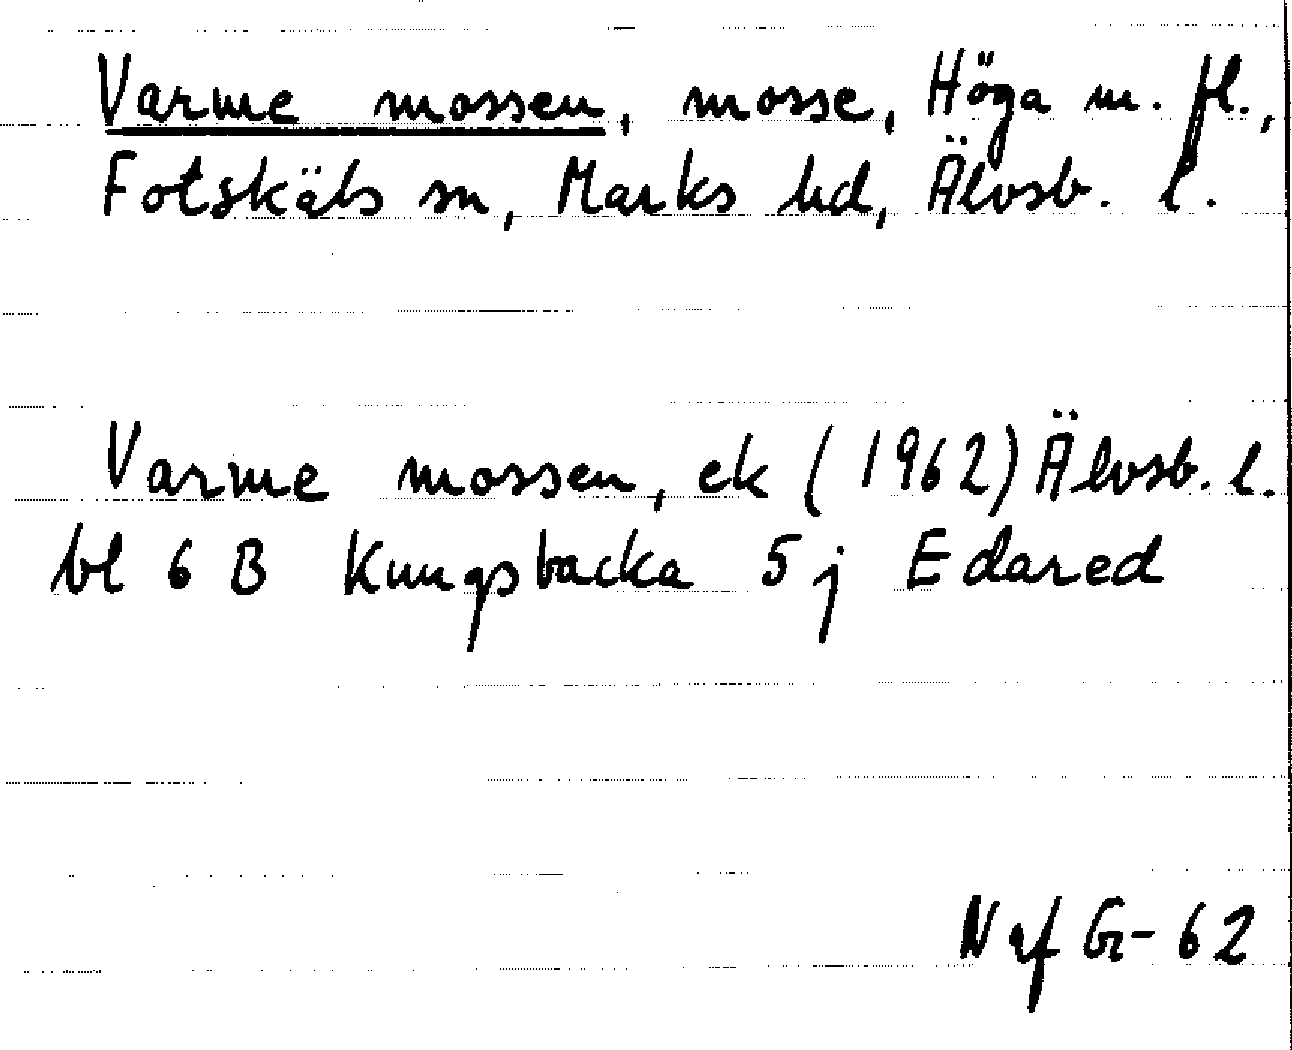 Varme mossen, mosse, Höga m. fl.,
Fotskäls sn, Marks hd, Älvsb. l.
Varme mossen, ek (1962) Älvsb. l.
bl 6 B Kungsbacka 5 j Edared
Naf Gr-62